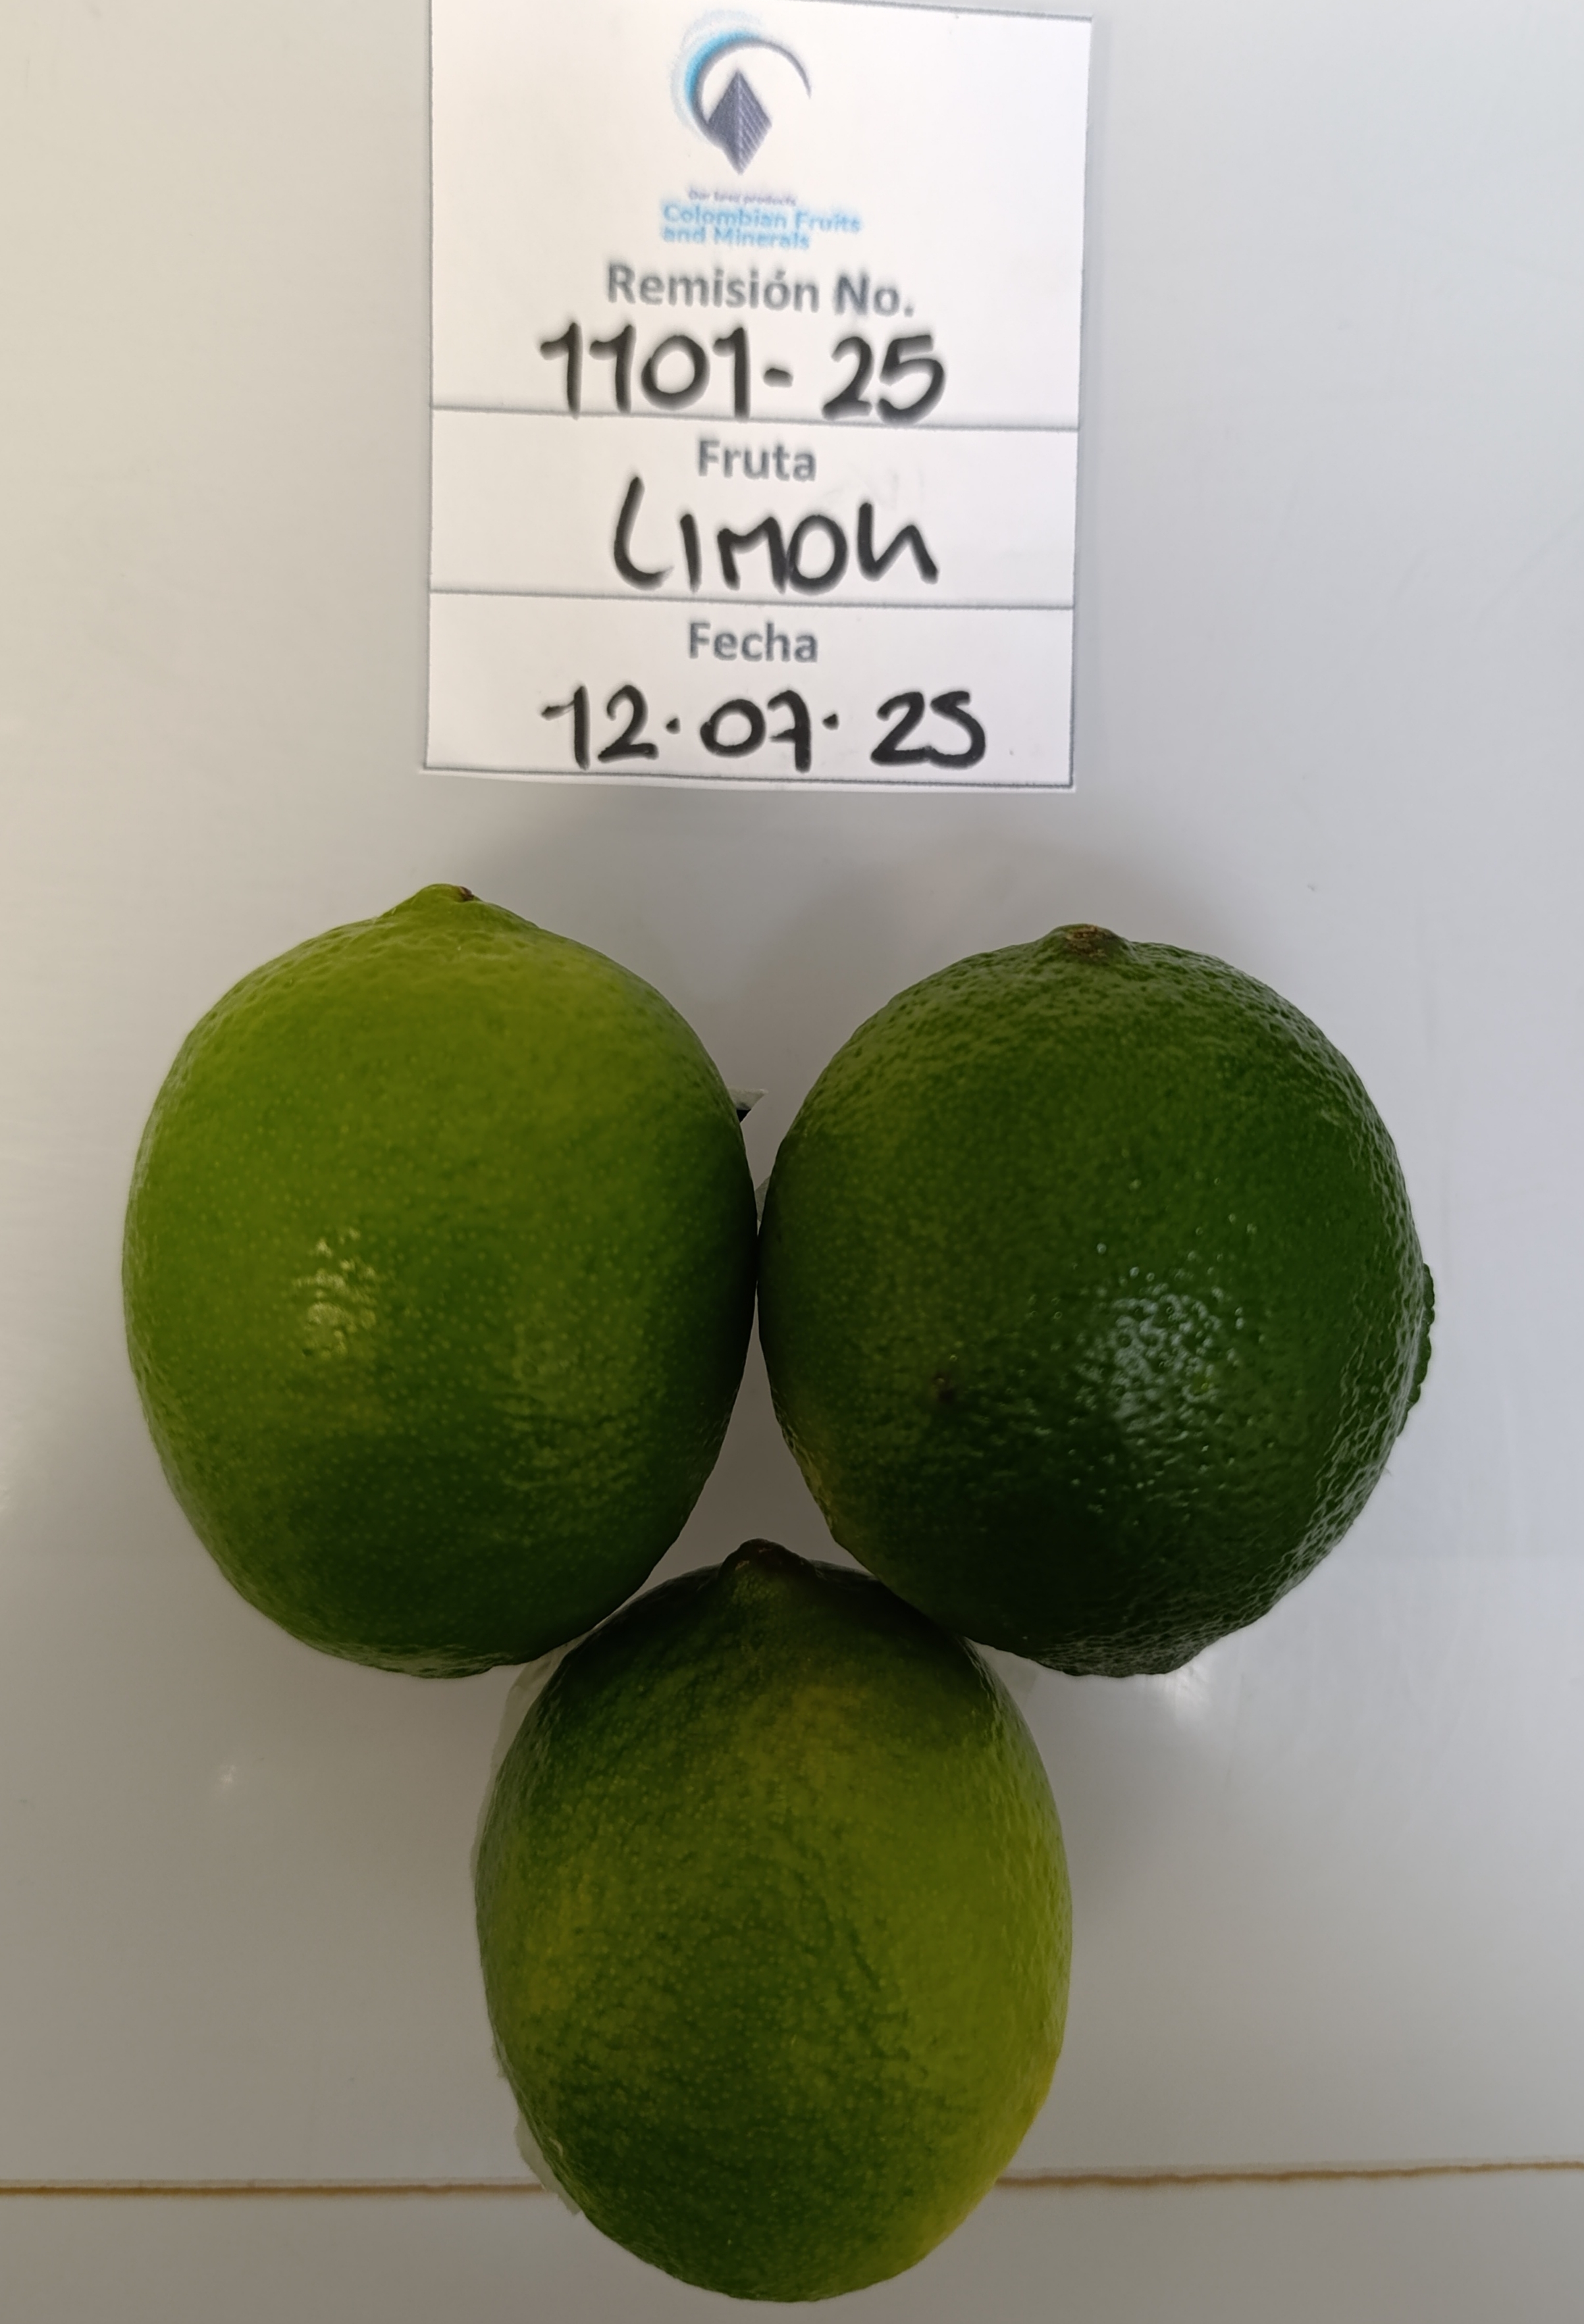 Our best products
Colombian Fruits
and Minerals
Remisión No.
1101-25
Fruta
Limon
Fecha
12.07.25